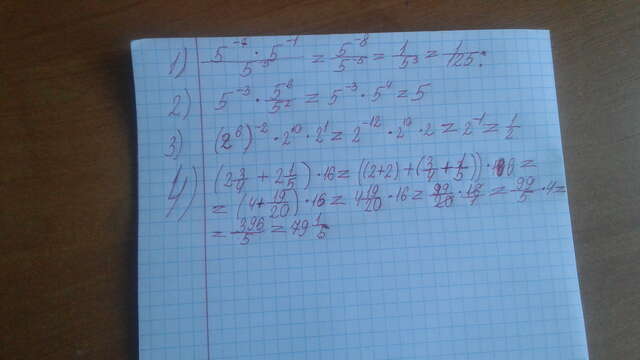 1) 5^-7 · 5^-1 / 5^-5 = 5^-8 / 5^-5 = 1/5^3 = 1/125;
2) 5^-3 · 5^6/5^2 = 5^-3 · 5^4 = 5
3) (2^6)^-2 · 2^10 · 2^1 = 2^-12 · 2^10 · 2 = 2^-1 = 1/2
4) (2 3/4 + 2 1/5) · 16 = ((2+2) + (3/4 + 1/5)) · 16 =
= (4 + 19/20) · 16 = 4 19/20 · 16 = 99/20 · 16/1 = 99/5 · 4 =
= 396/5 = 79 1/5